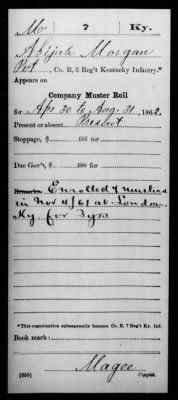 M | 7 | Ky.
Abijah Morgan
Pvt, Co. B, 3 Reg't Kentucky Infantry.*
Appears on
Company Muster Roll
for Apr 30 to Aug. 31, 1862.
Present or absent Present
Stoppage, $ 100 for
Due Gov't, $ 100 for
Remarks: Enrolled & mustered
in Nov 4/61 at London
Ky. for 3yrs
*This organization subsequently became Co. B, 7 Reg't Ky. Inf.
Book mark:
Magee
(358) Copyist.